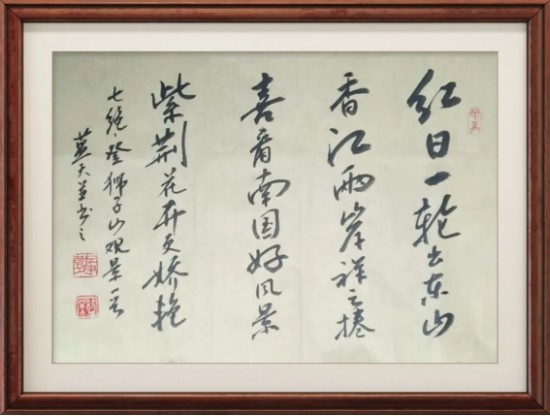 红日一轮出东山
香江兩岸祥云捲
喜看南国好风景
紫荆花开更娇艳
七绝·登狮子山观景一首
天并书之